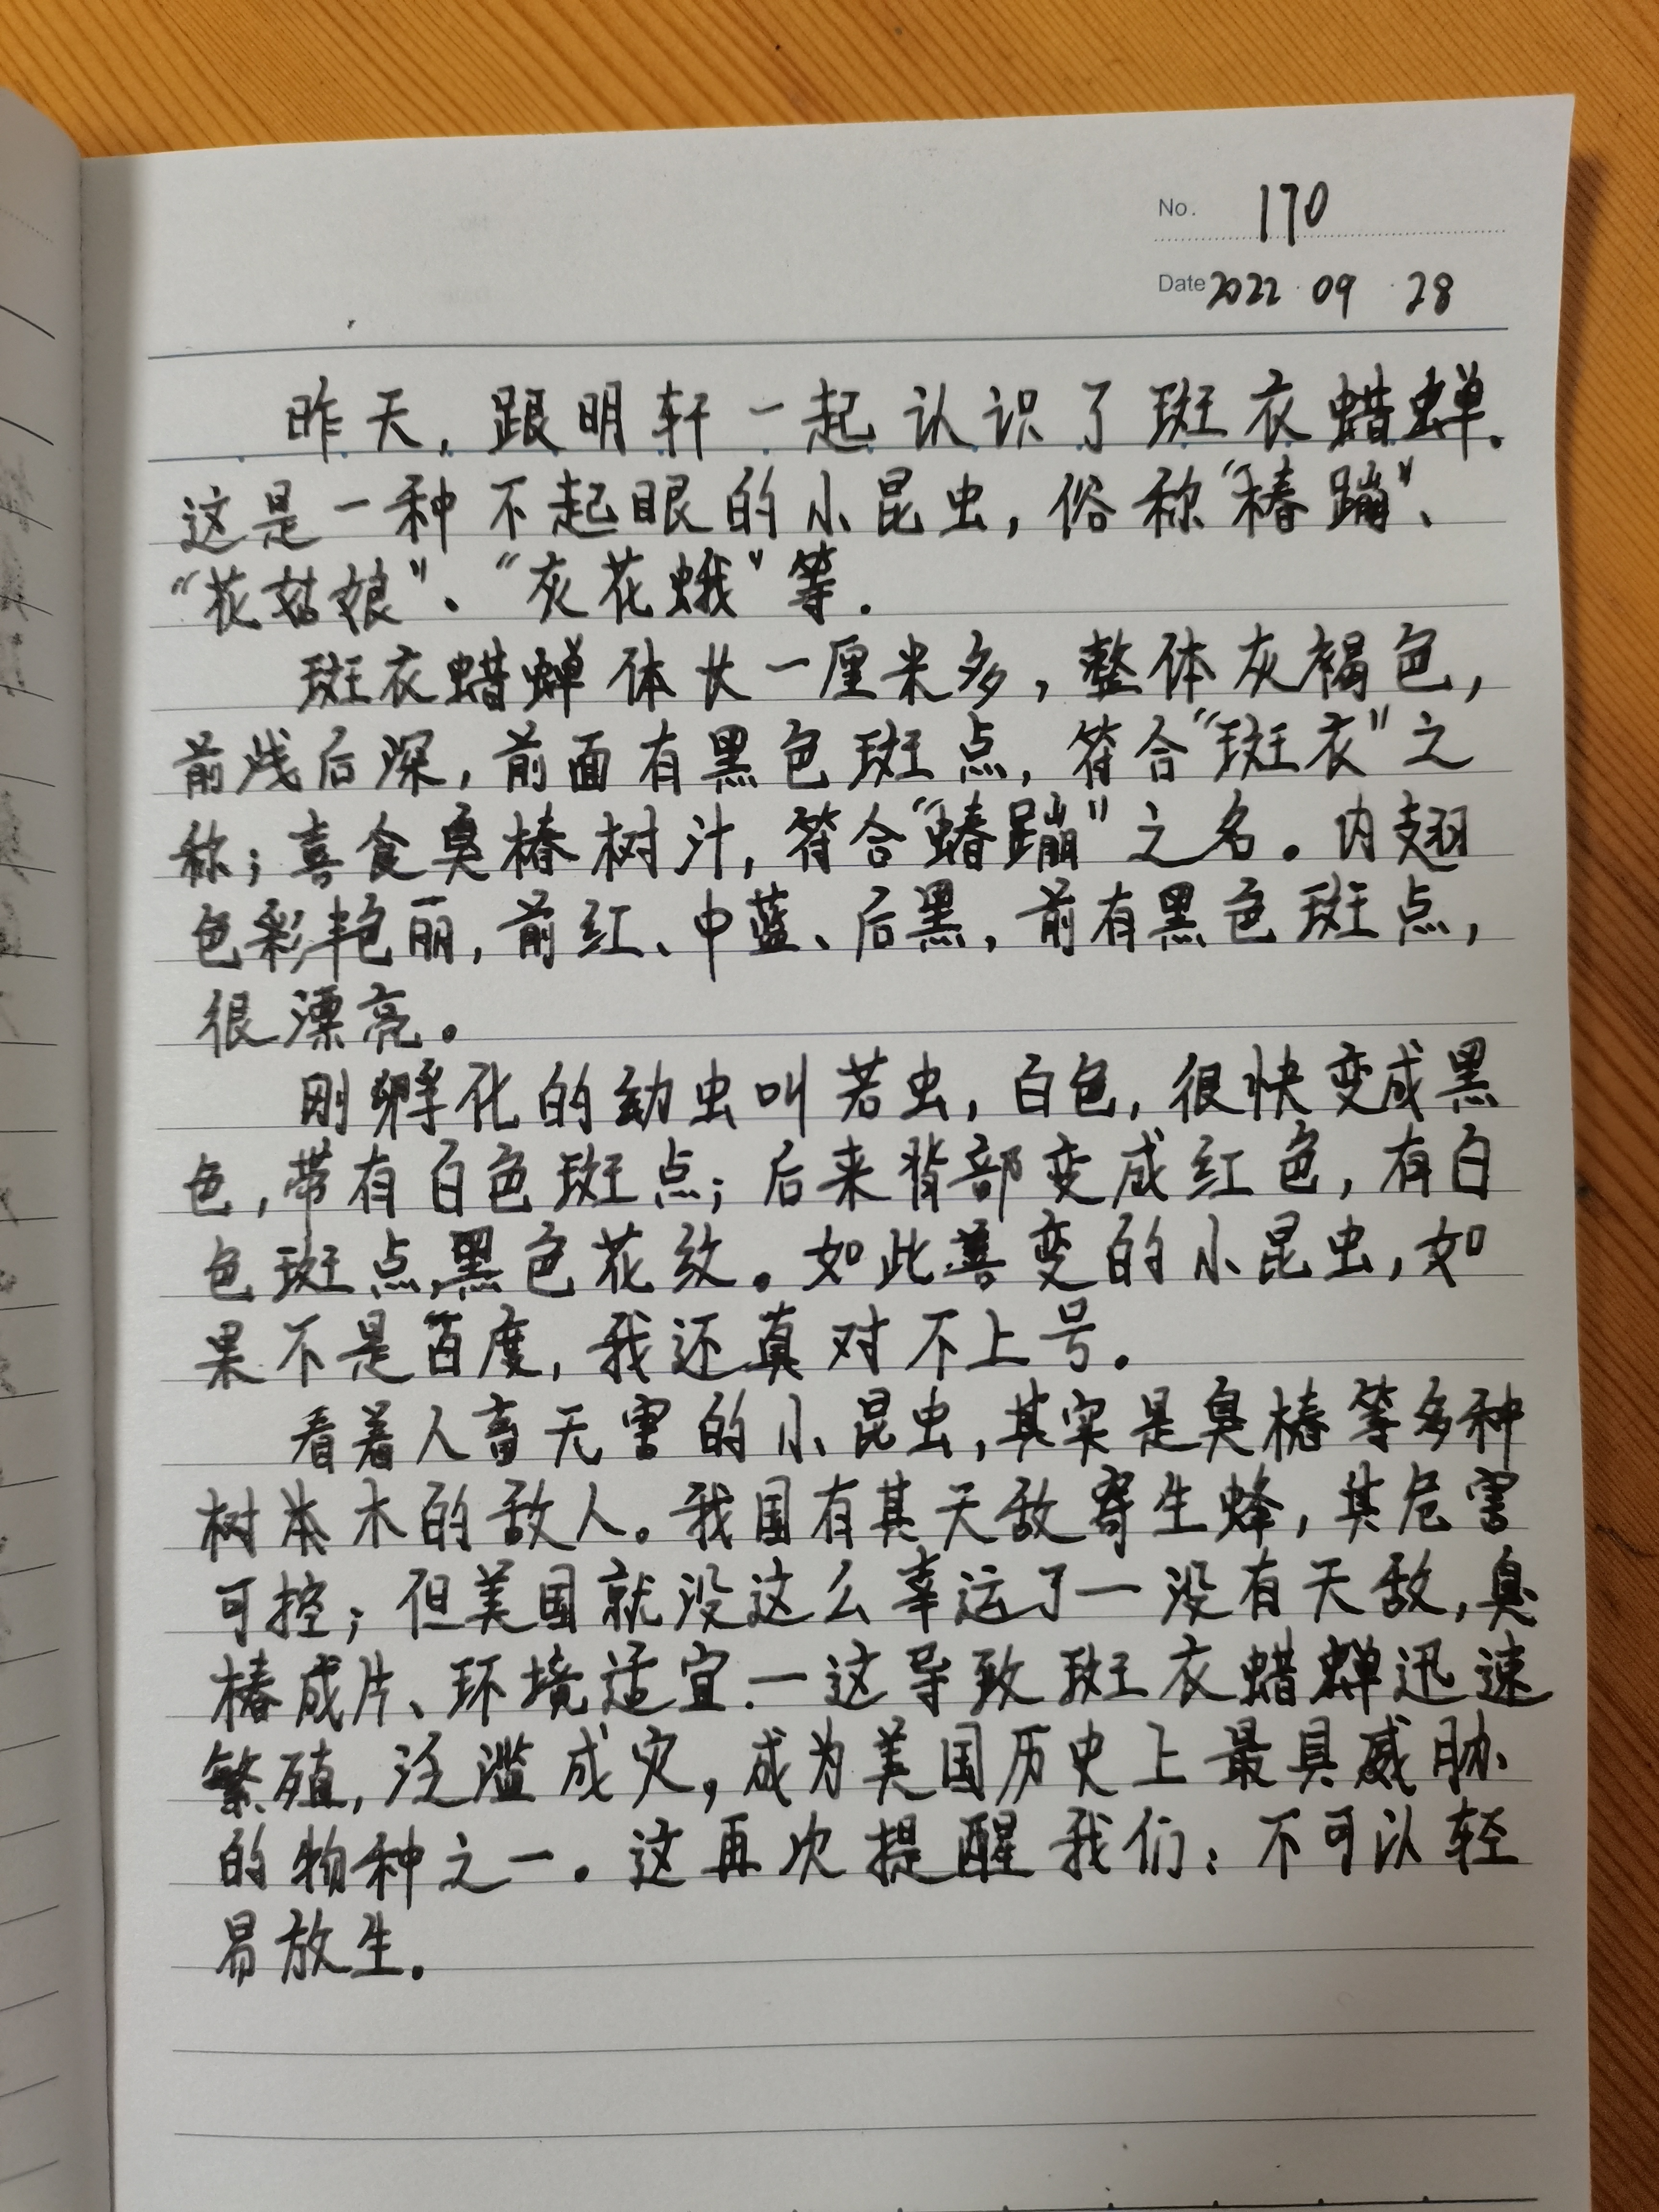 No. 170
Date 2022 · 09 · 28
昨天,跟明轩一起认识了斑衣蜡蝉.
这是一种不起眼的小昆虫,俗称“椿蹦”、
“花姑娘”、“灰花蛾”等.
斑衣蜡蝉体长一厘米多,整体灰褐色,
前浅后深,前面有黑色斑点,符合“斑衣”之
称;喜食臭椿树汁,符合“蝽蹦”之名。内翅
色彩艳丽,前红、中蓝、后黑,前有黑色斑点,
很漂亮。
刚孵化的幼虫叫若虫,白色,很快变成黑
色,带有白色斑点;后来背部变成红色,有白
色斑点,黑色花纹。如此善变的小昆虫,如
果不是百度,我还真对不上号.
看着人畜无害的小昆虫,其实是臭椿等多种
树木的敌人。我国有其天敌寄生蜂,其危害
可控;但美国就没这么幸运了—没有天敌,臭
椿成片、环境适宜.—这导致斑衣蜡蝉迅速
繁殖,泛滥成灾,成为美国历史上最具威胁
的物种之一.这再次提醒我们:不可以轻
易放生.